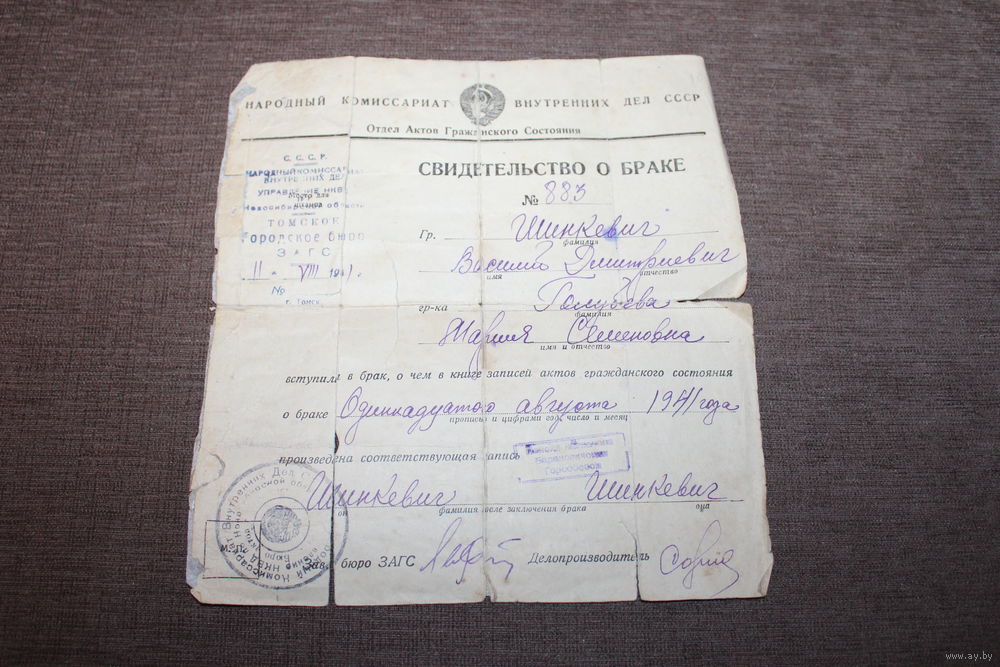 НАРОДНЫЙ КОМИССАРИАТ ВНУТРЕННИХ ДЕЛ СССР
Отдел Актов Гражданского Состояния
С. С. С. Р.
НАРОДНЫЙ КОМИССАРИАТ
ВНУТРЕННИХ ДЕЛ
УПРАВЛЕНИЕ НКВД
Место для
Новосибирской области
ТОМСКОЕ
Городское бюро
ЗАГС
11 - VIII 1941 г.
№
г. Томск
СВИДЕТЕЛЬСТВО О БРАКЕ
№ 883
Гр. Шинкевич
фамилия
Василий Дмитриевич
имя отчество
гр-ка Голубева
фамилия
Мария Семеновна
имя и отчество
вступили в брак, о чем в книге записей актов гражданского состояния
о браке Одиннадцатого августа 1941 года
прописью и цифрами год, число и месяц
произведена соответствующая запись
Шинкевич Шинкевич
он фамилия после заключения брака она
Зав. бюро ЗАГС Делопроизводитель
www.ay.by